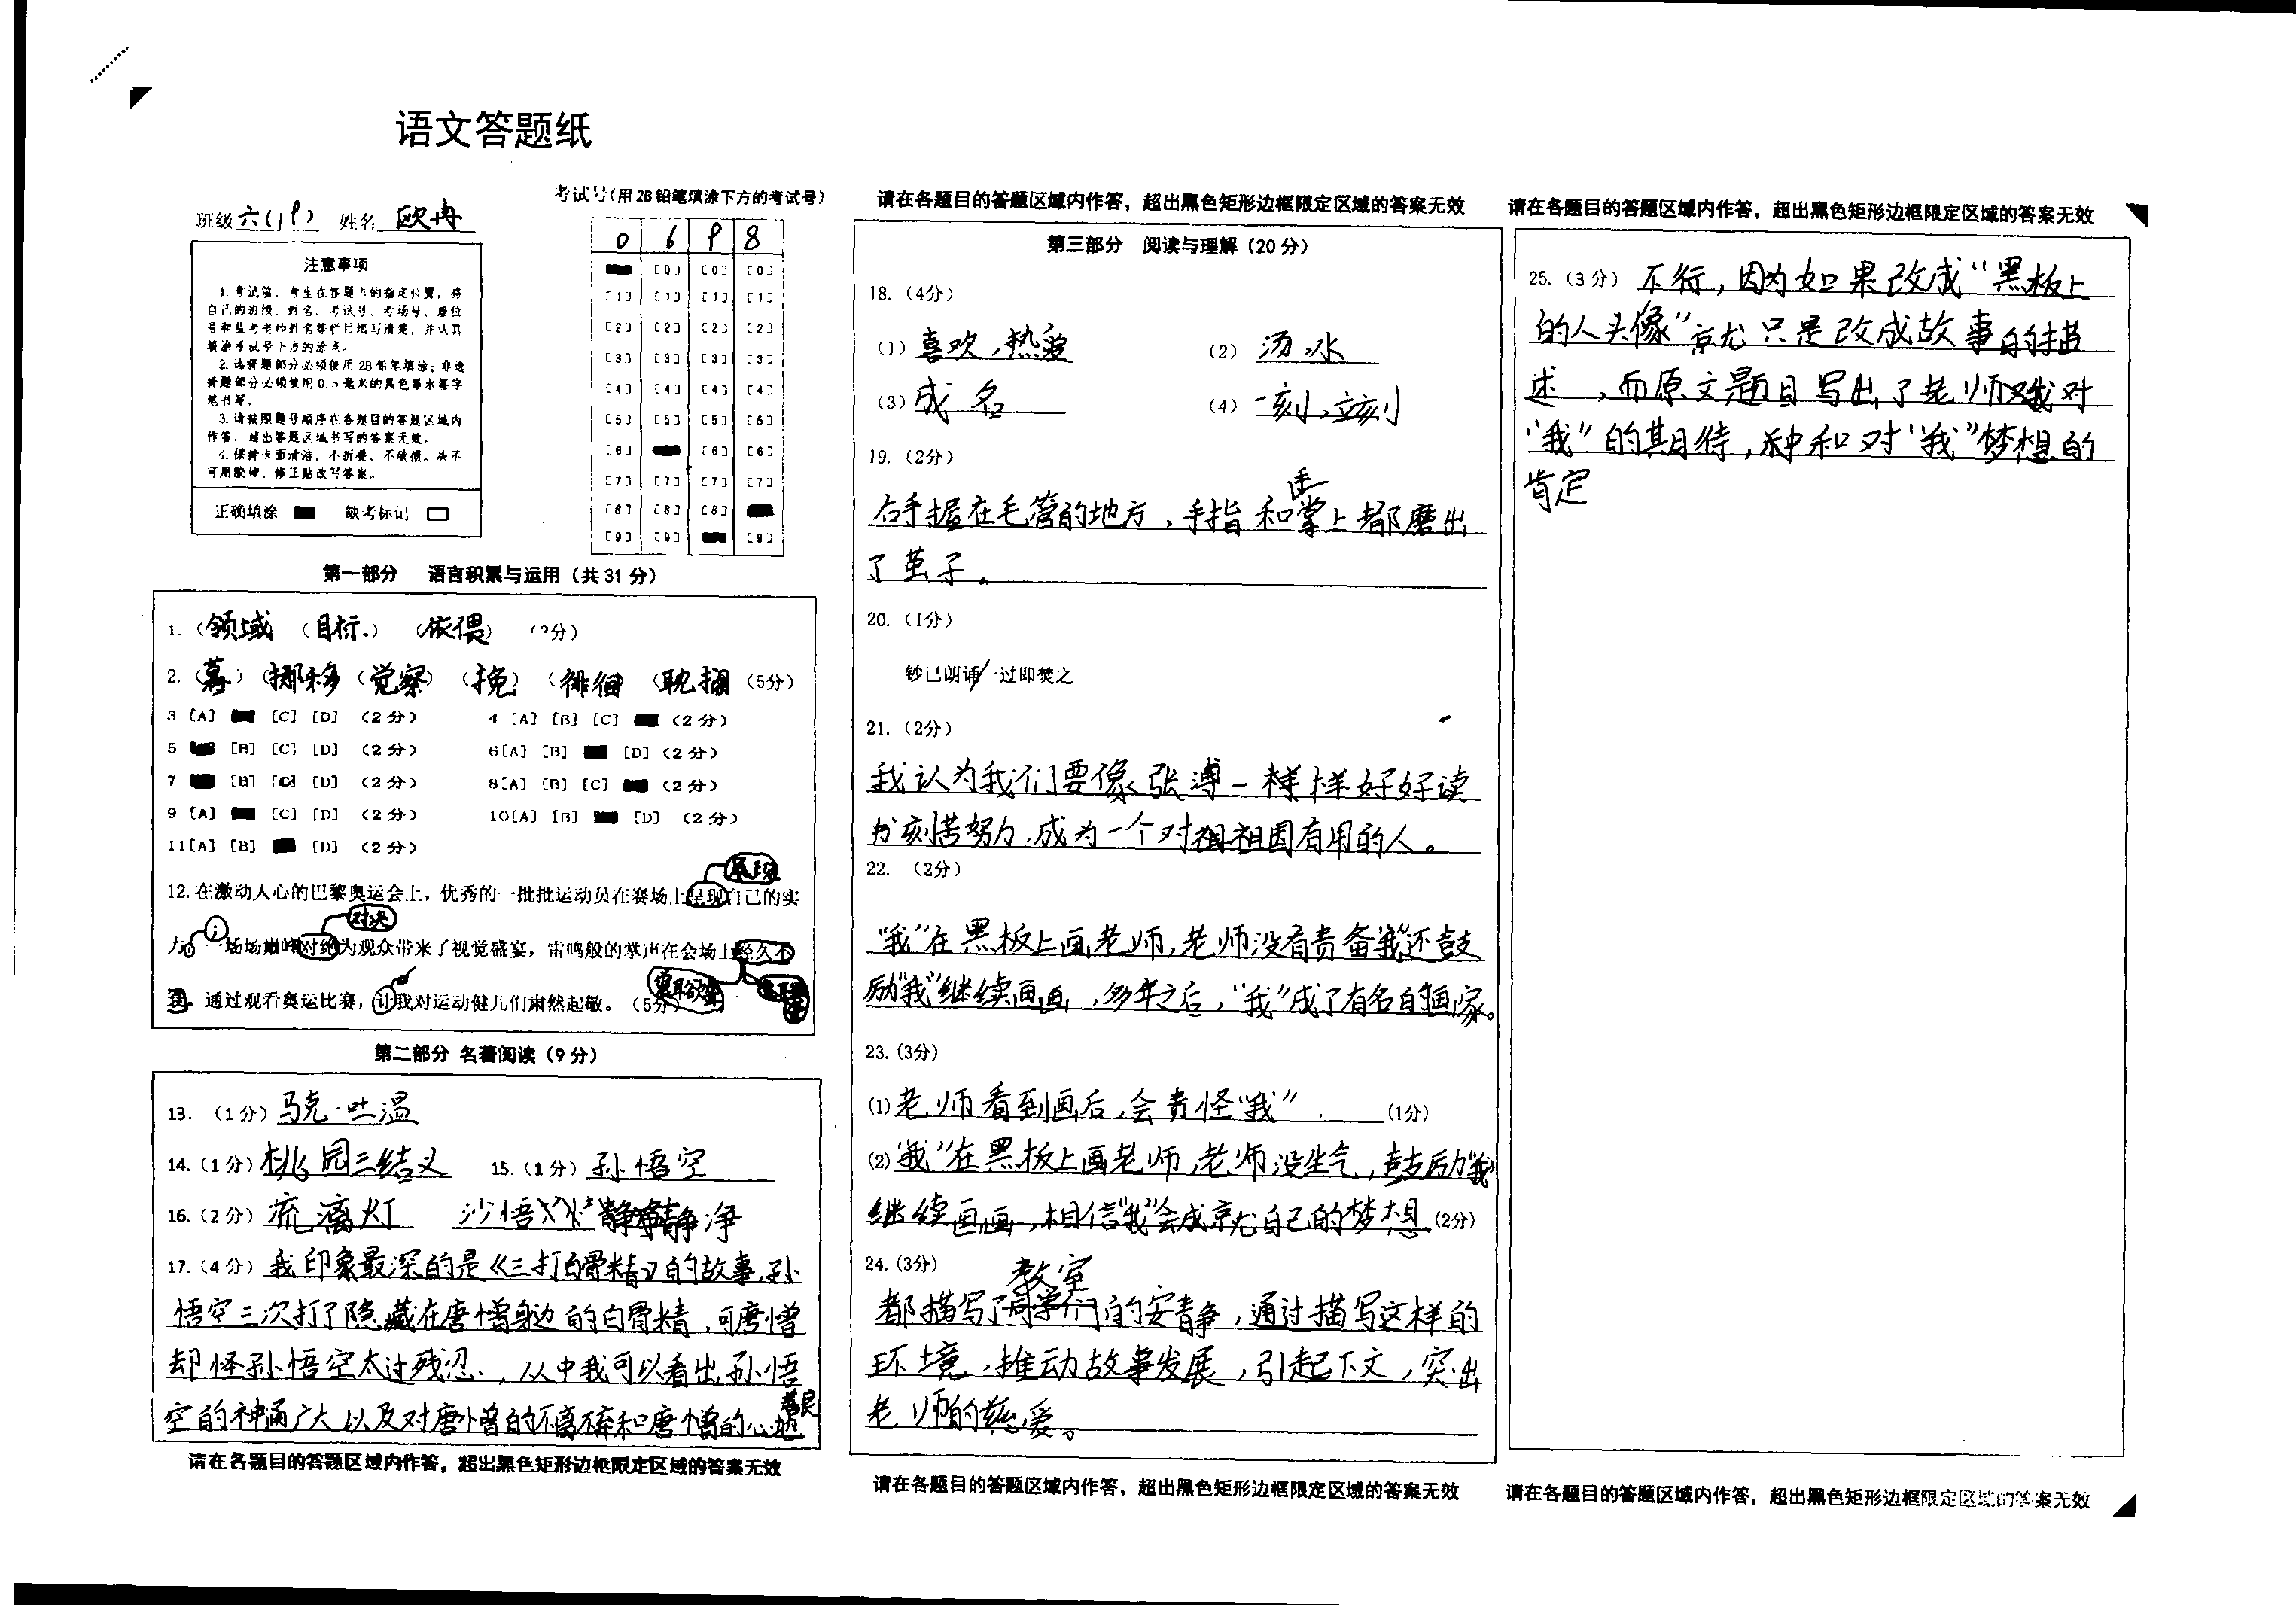 语文答题纸
考试号(用2B铅笔填涂下方的考试号)
班级 六(19) 姓名 欧冉
0 6 9 8
注意事项
1. 考试前，考生在答题卡的指定位置，将
自己的班级、姓名、考试号、考场号、座位
号和监考老师姓名等栏目填写清楚，并认真
填涂考试号下方的涂点。
2. 选择题部分必须使用2B铅笔填涂；非选
择题部分必须使用0.5毫米的黑色墨水签字
笔书写。
3. 请按照题号顺序在各题目的答题区域内
作答，超出答题区域书写的答案无效。
4. 保持卡面清洁，不折叠、不破损。决不
可用胶带、修正贴改写答案。
正确填涂 缺考标记
[0] [0] [0]
[1] [1] [1] [1]
[2] [2] [2] [2]
[3] [3] [3] [3]
[4] [4] [4] [4]
[5] [5] [5] [5]
[6] [6] [6]
[7] [7] [7] [7]
[8] [8] [8]
[9] [9] [9]
第一部分 语言积累与运用（共31分）
1.（领域）（目标）（依偎）（3分）
2.（幕）（挪移）（觉察）（挽）（徘徊）（耽搁）（5分）
3 [A] [C] [D] （2分） 4 [A] [B] [C] （2分）
5 [B] [C] [D] （2分） 6 [A] [B] [D]（2分）
7 [B] [C] [D] （2分） 8 [A] [B] [C] （2分）
9 [A] [C] [D] （2分） 10 [A] [B] [D] （2分）
11 [A] [B] [D] （2分）
展现
12. 在激动人心的巴黎奥运会上，优秀的一批批运动员在赛场上呈现自己的实
对决
力。一场场巅峰对绝为观众带来了视觉盛宴，雷鸣般的掌声在会场上经久不
通过观看奥运比赛，让我对运动健儿们肃然起敬。（5分）
震耳欲聋
第二部分 名著阅读（9分）
13. （1分）马克·吐温
14.（1分）桃园三结义 15.（1分）孙悟空
16.（2分）流漓灯 沙悟净
17.（4分）我印象最深的是《三打白骨精》的故事,孙
悟空三次打了隐藏在唐憎身边的白骨精,可唐憎
却怪孙悟空太过残忍.，从中我可以看出孙悟
空的神通广大以及对唐憎的不离不弃和唐憎的心地
善良
请在各题目的答题区域内作答，超出黑色矩形边框限定区域的答案无效
请在各题目的答题区域内作答，超出黑色矩形边框限定区域的答案无效
第三部分 阅读与理解（20分）
18.（4分）
(1) 喜欢,热爱 (2) 汤,水
(3) 成名 (4) 一刻,立刻
19.（2分）
右手握在毛管的地方,手指和手掌上都磨出
了茧子。
20.（1分）
钞已朗诵/一过即焚之
21.（2分）
我认为我们要像张溥一样样好好读
书刻苦努力,成为一个对祖国有用的人。
22. （2分）
“我”在黑板上画老师,老师没有责备“我”还鼓
励“我”继续画画,多年之后,“我”成了有名的画家。
23.（3分）
(1) 老师看到画后,会责怪“我”. (1分)
(2) “我”在黑板上画老师,老师没生气,鼓励“我”
继续画画,相信“我”会成就自己的梦想 (2分)
24.（3分）
教室
都描写了同学们的安静,通过描写这样的
环境,推动故事发展,引起下文,突出
老师的慈爱。
请在各题目的答题区域内作答，超出黑色矩形边框限定区域的答案无效
请在各题目的答题区域内作答，超出黑色矩形边框限定区域的答案无效
25.（3分）不行,因为如果改成“黑板上
的人头像”就只是改成故事的描
述,而原文题目写出了老师对
“我”的期待,和对“我”梦想的
肯定
请在各题目的答题区域内作答，超出黑色矩形边框限定区域的答案无效